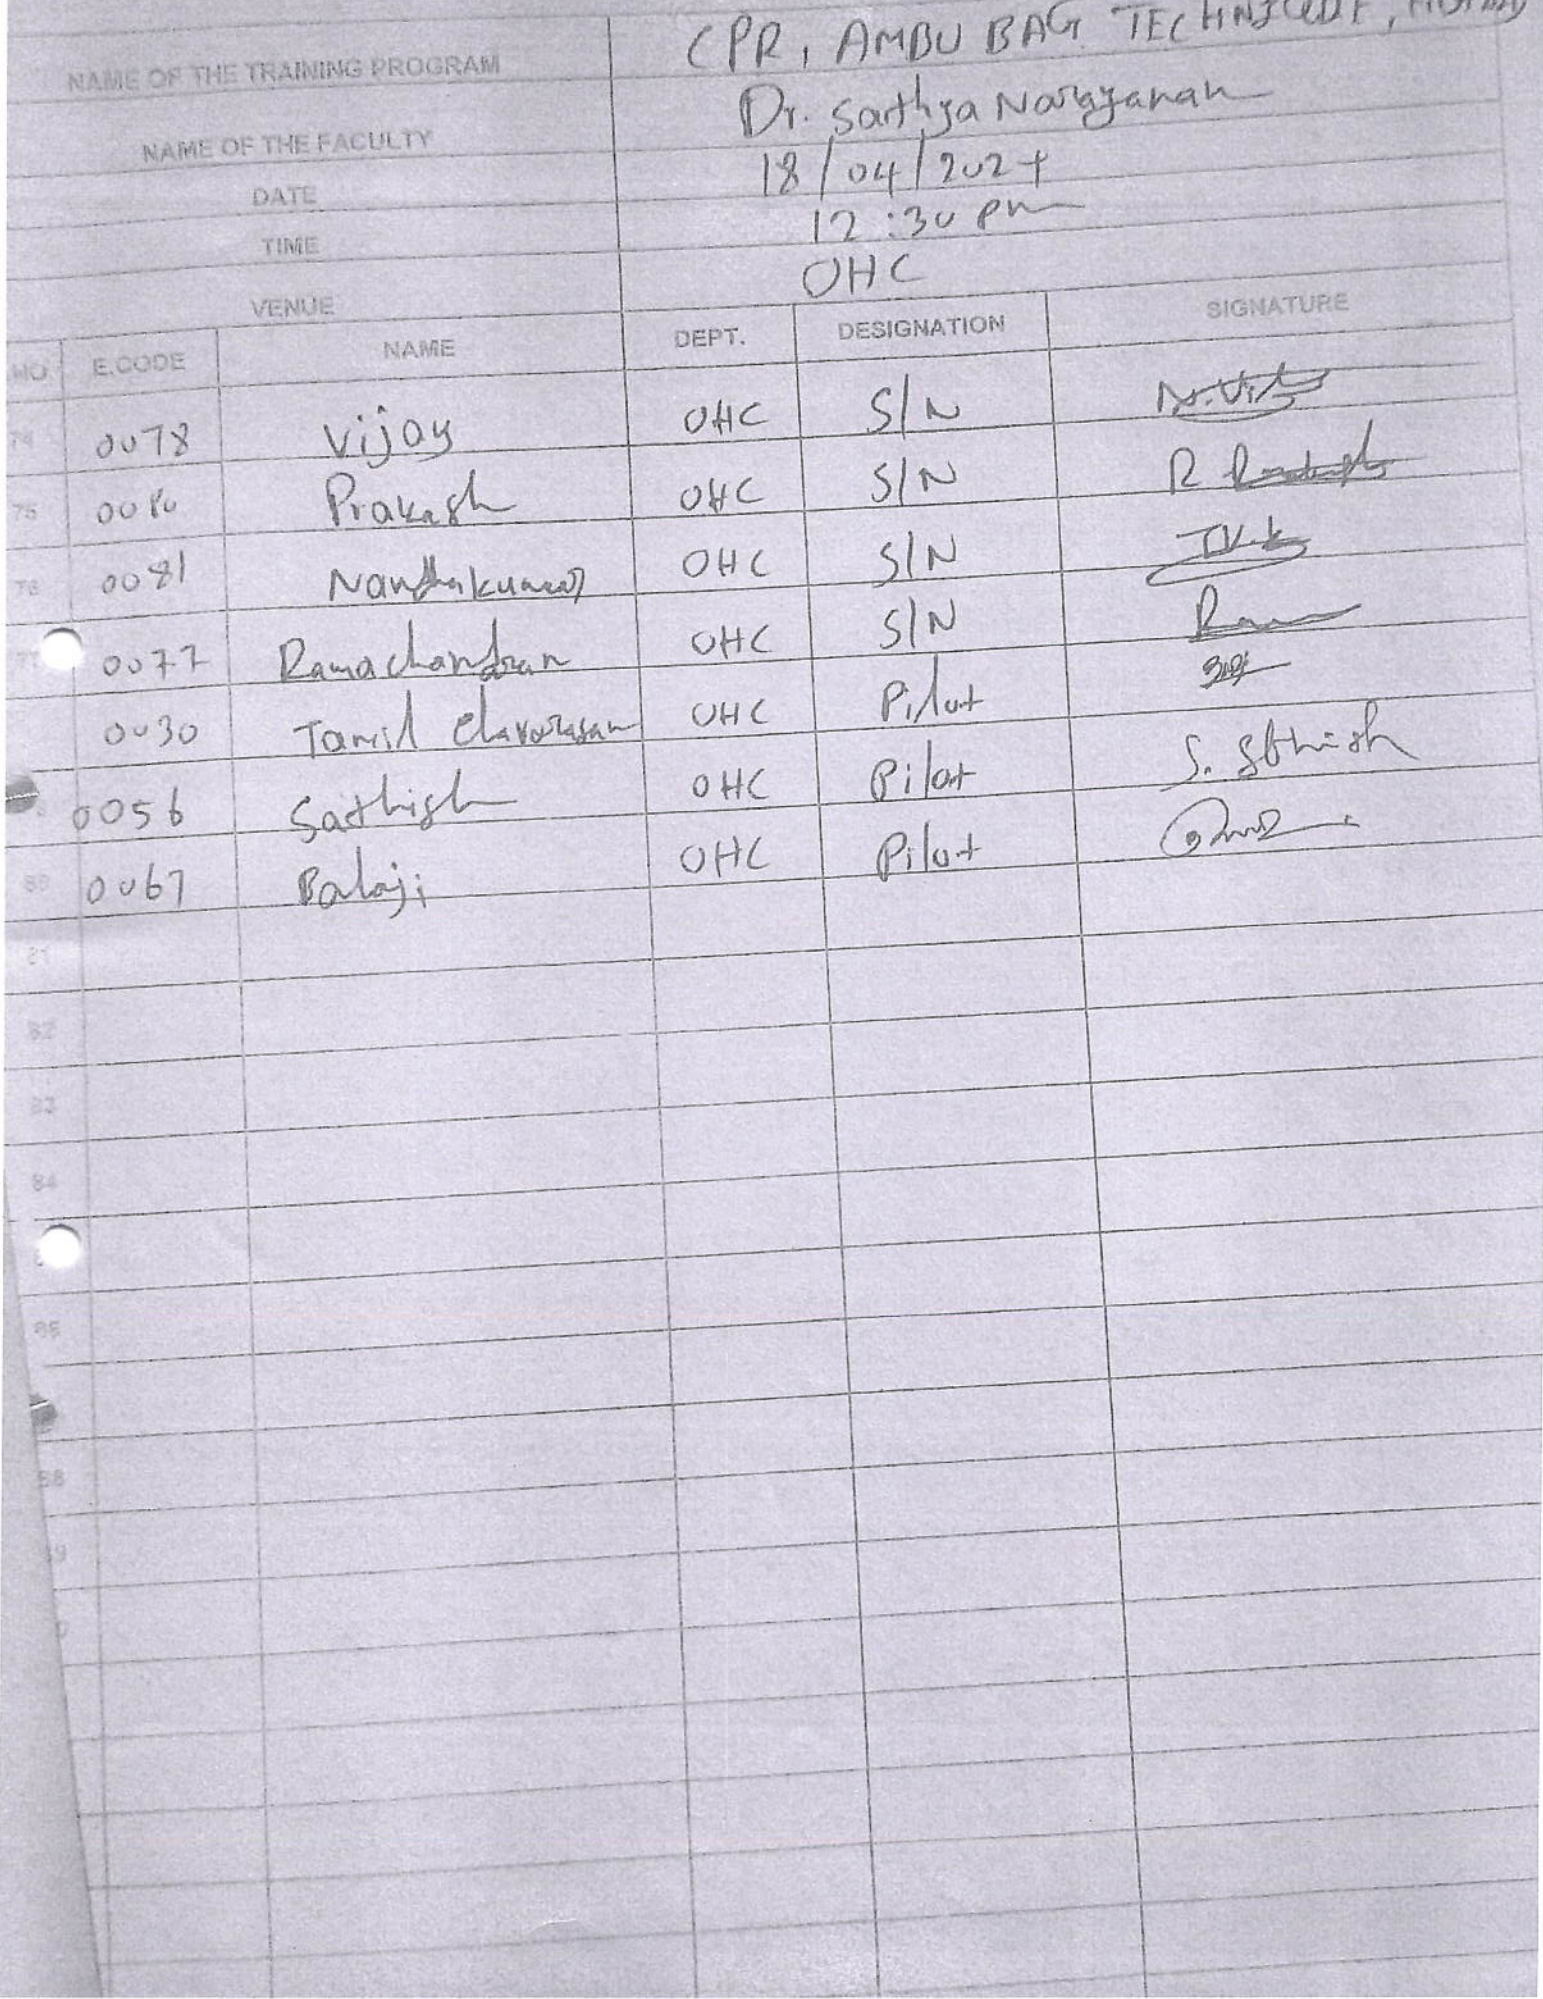 NAME OF THE TRAINING PROGRAM CPR, AMBU BAG TECHNIQUE,
NAME OF THE FACULTY Dr. Sathya Narayanan
DATE 18/04/2024
TIME 12:30 pm
VENUE OHC
NO E.CODE NAME DEPT. DESIGNATION SIGNATURE
74 0078 Vijay OHC S/N N.Vij
75 0080 Prakash OHC S/N R
76 0081 Nandhakumar OHC S/N
77 0077 Ramachandran OHC S/N Ram
0030 Tamil Elavarasan OHC Pilot
0056 Sathish OHC Pilot S. Sathish
80 0067 Balaji OHC Pilot
81
82
83
84
86
88
89